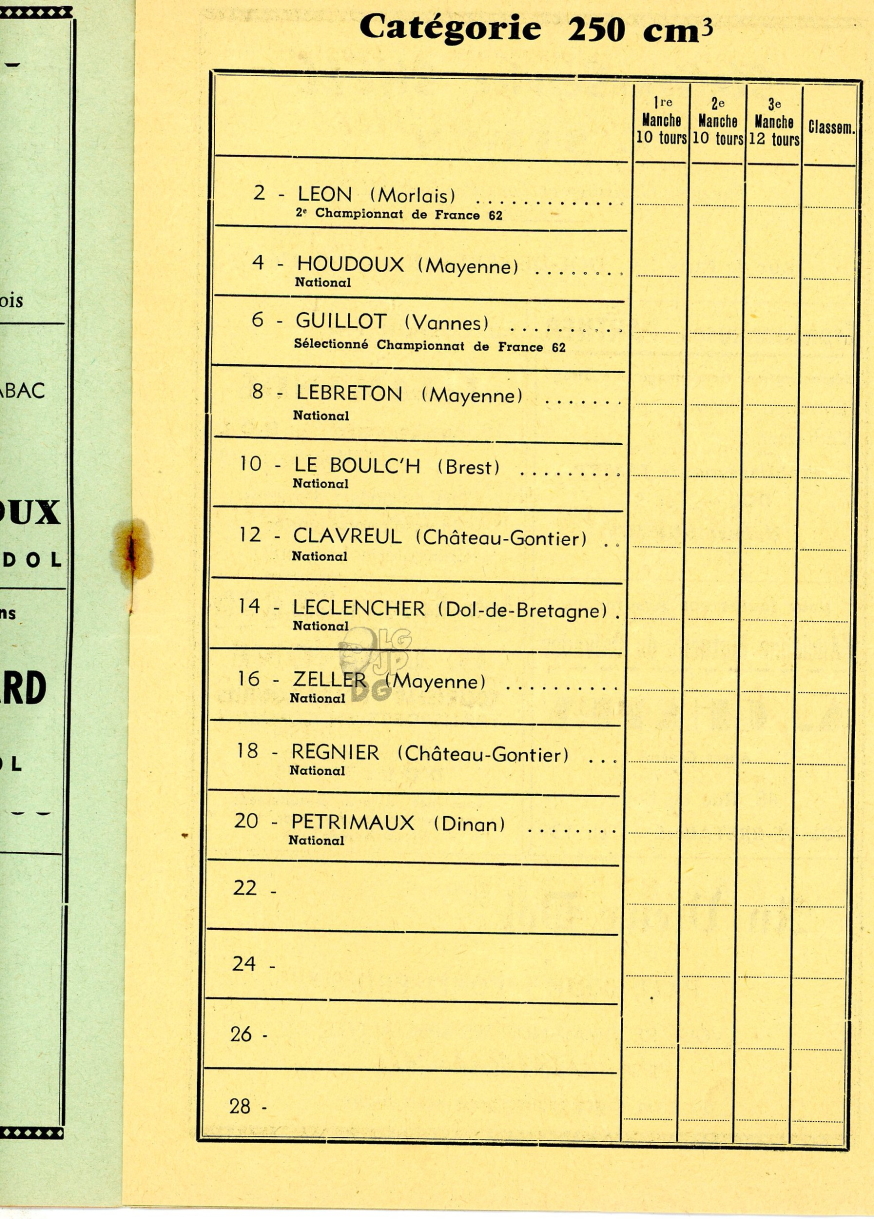 Catégorie 250 cm³
1re Manche 10 tours
2e Manche 10 tours
3e Manche 12 tours
Classem.
2 - LEON (Morlais) .............
2e Championnat de France 62
4 - HOUDOUX (Mayenne) ........
National
6 - GUILLOT (Vannes) ..........
Sélectionné Championnat de France 62
8 - LEBRETON (Mayenne) .......
National
10 - LE BOULC'H (Brest) .........
National
12 - CLAVREUL (Château-Gontier) ..
National
14 - LECLENCHER (Dol-de-Bretagne) .
National
16 - ZELLER (Mayenne) ..........
National
18 - REGNIER (Château-Gontier) ...
National
20 - PETRIMAUX (Dinan) ........
National
22 -
24 -
26 -
28 -
ois
ABAC
OUX
DOL
ns
ARD
OL
LG
JP
DG